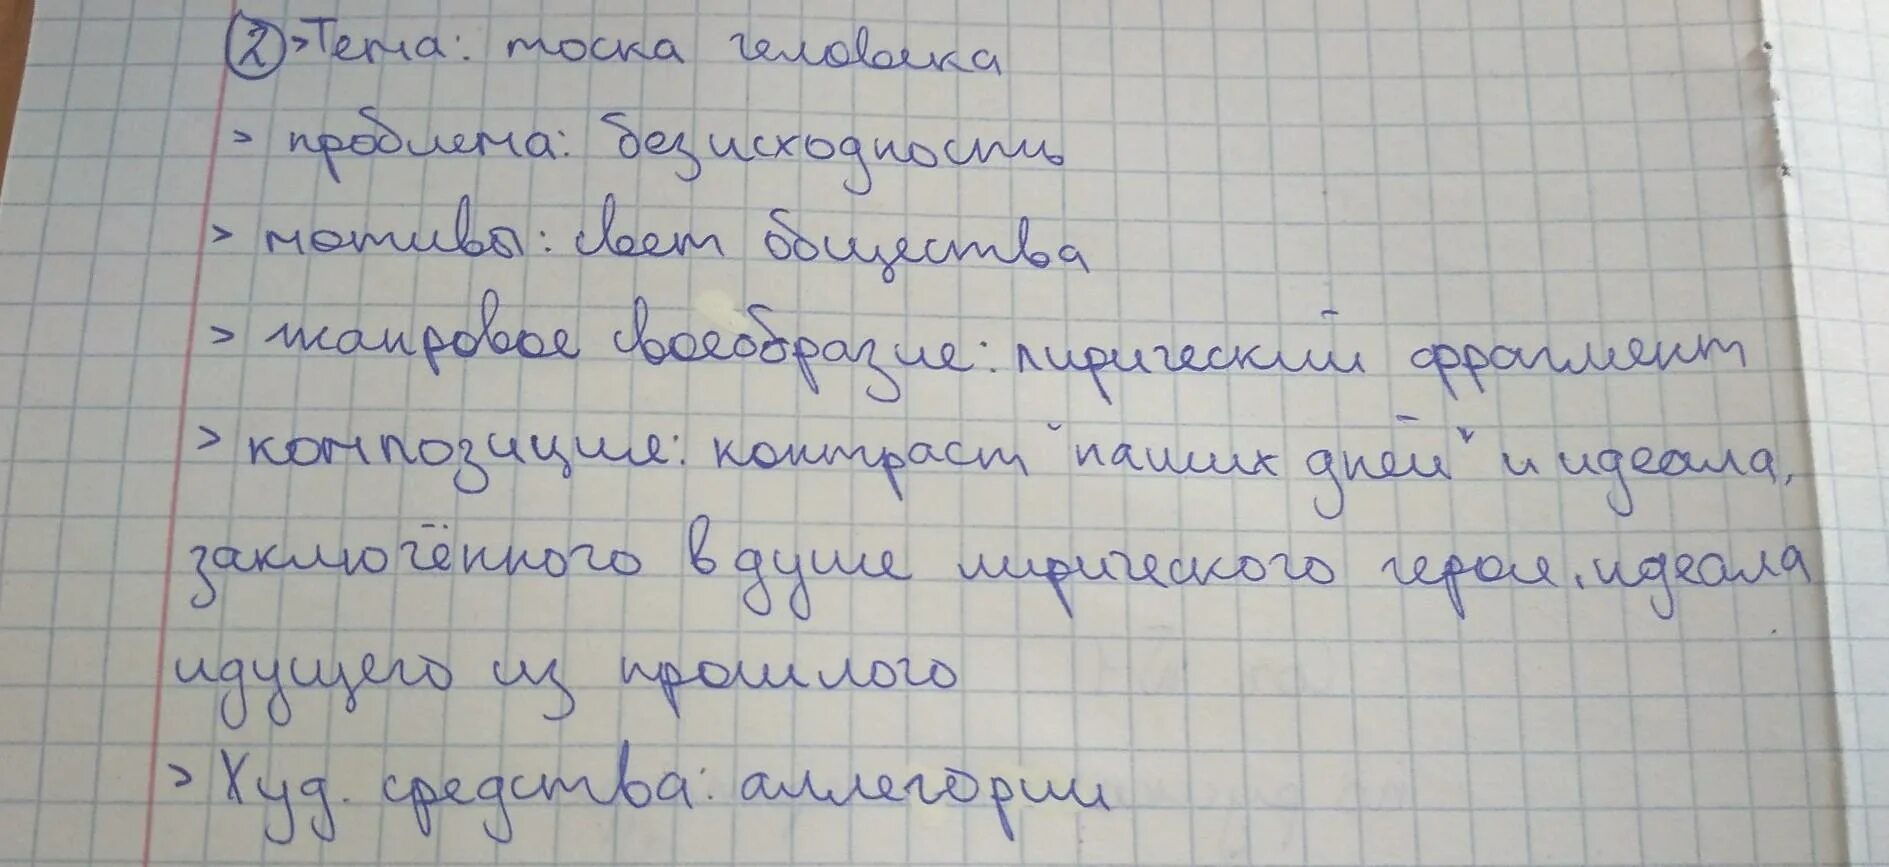 ② > Тема: тоска человека
> проблема: безисходность
> мотивы: свет общества
> жанровое своеобразие: лирический фрагмент
> композиция: контраст "наших дней" и идеала,
заключённого в душе лирического героя, идеала
идущего из прошлого
> Худ. средства: аллегории